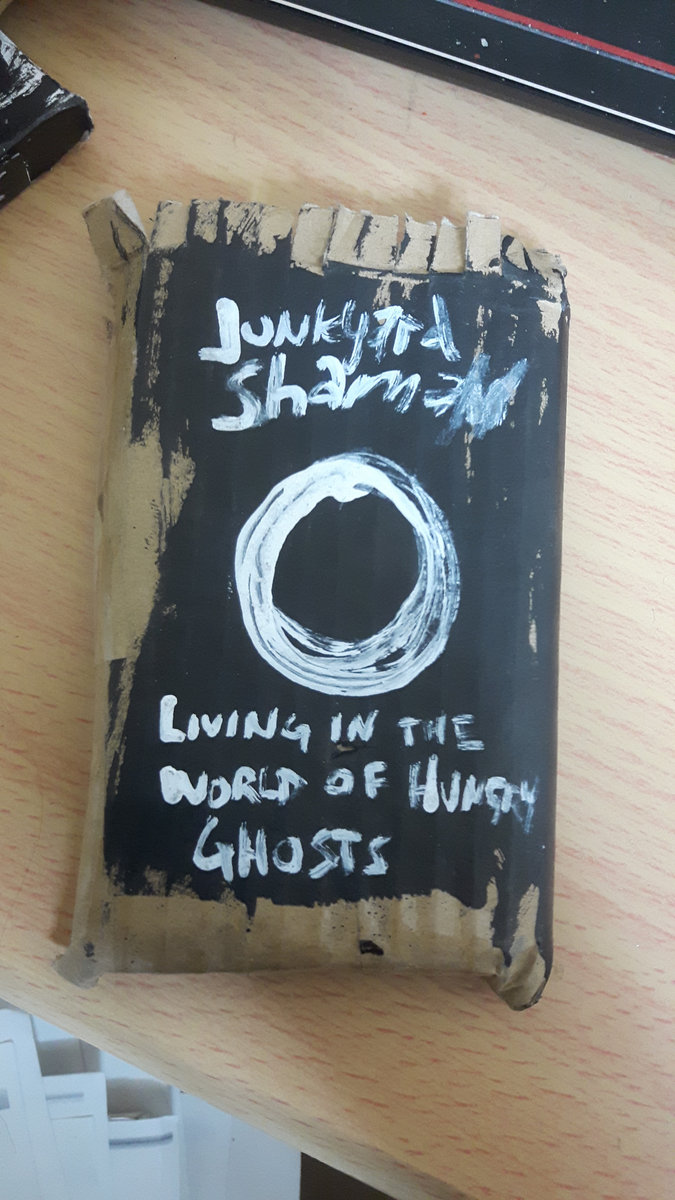 Junkyard
Shaman
LIVING IN THE
WORLD OF HUNGRY
GHOSTS